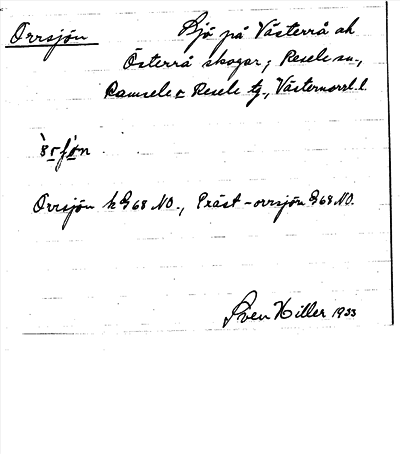 Orrsjön
Sjö på Västerrå och
Österrå skogar; Resele sn.,
Ramsele o Resele tg., Västernorrl. l.
Orrsjön k G 68 NO., Präst-orrsjön G 68 NO.
Sven Hiller 1933